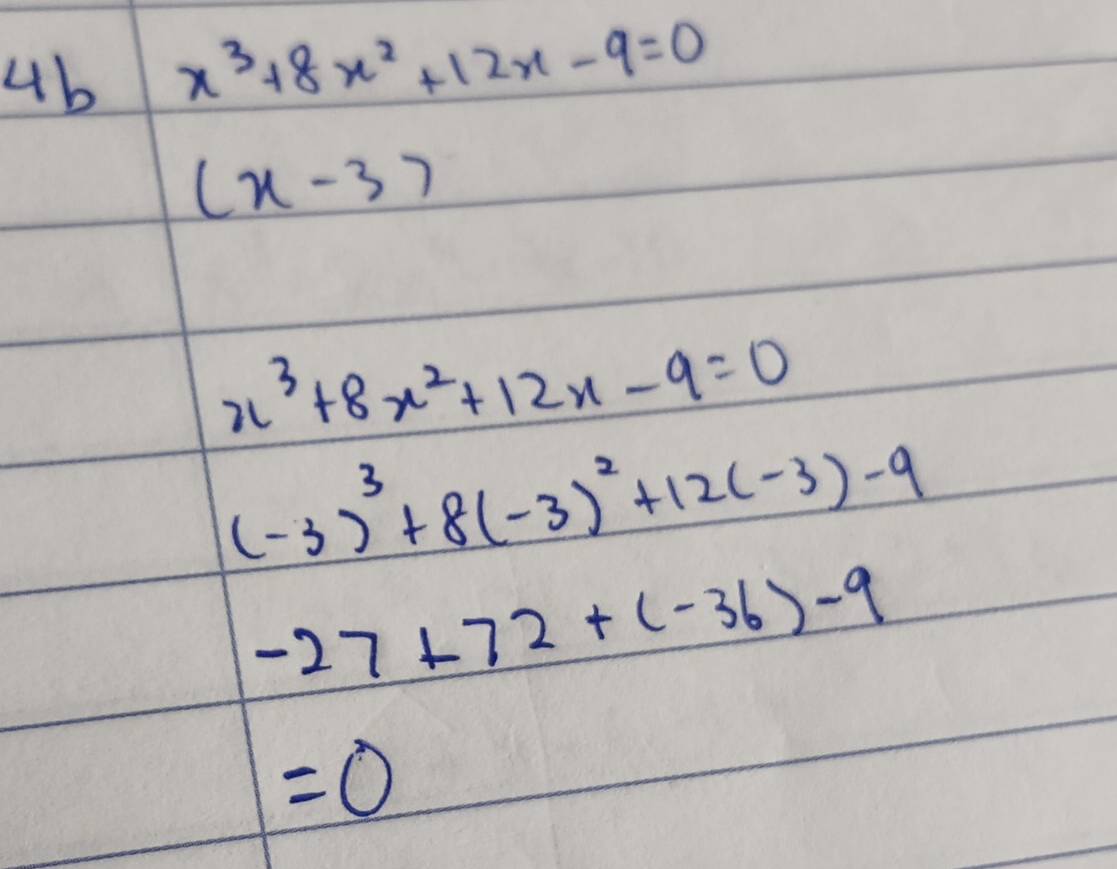 4b x³+8x²+12x-9=0
(x-3)
x³+8x²+12x-9=0
(-3)³+8(-3)²+12(-3)-9
-27+72+(-36)-9
=0